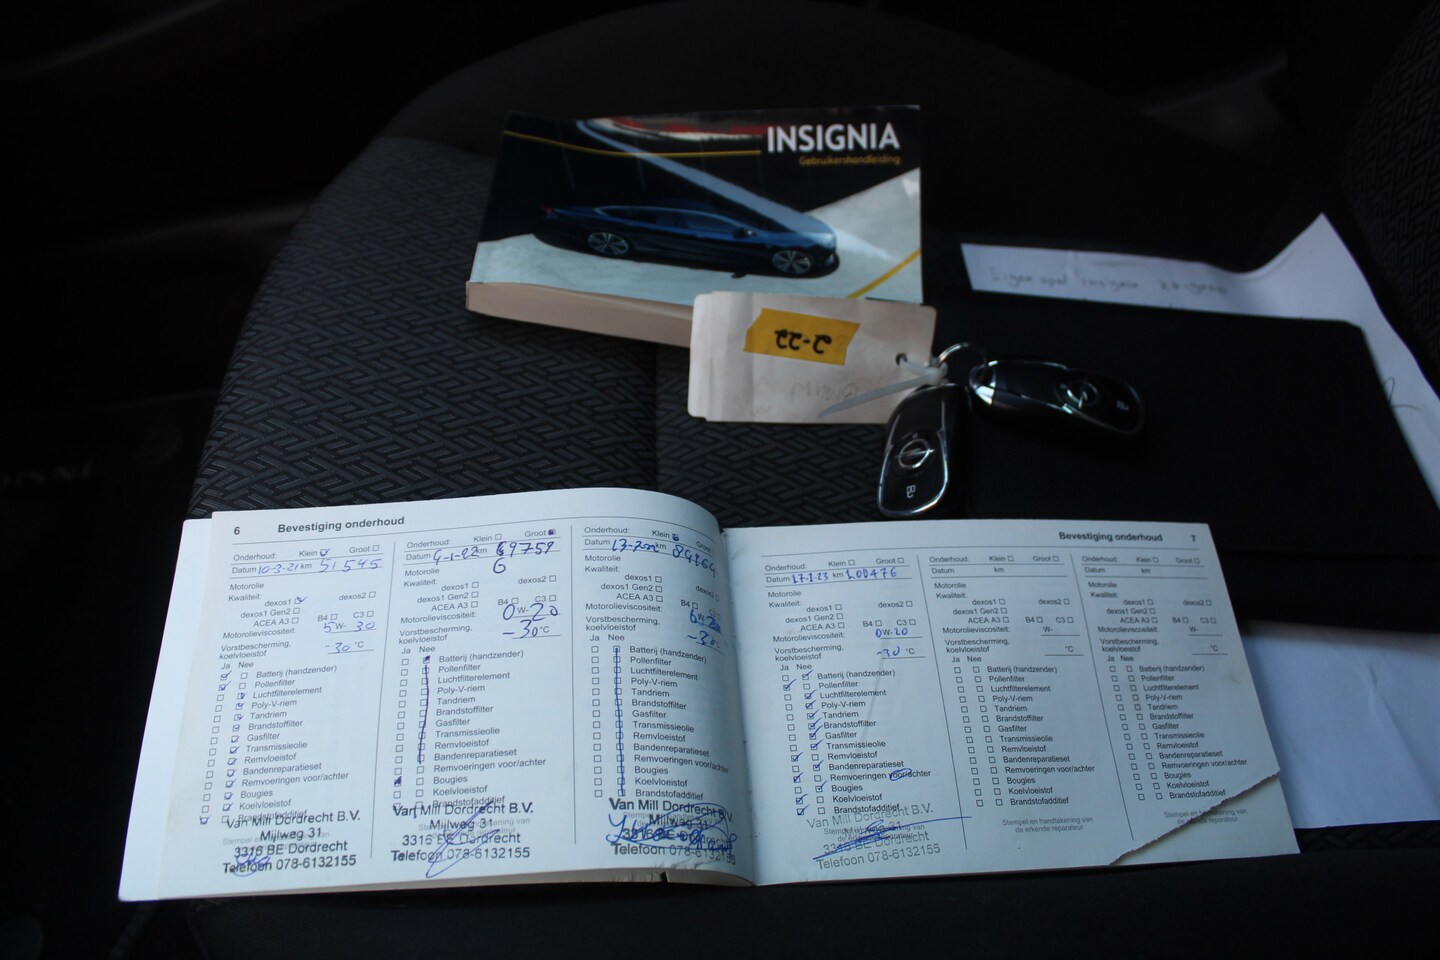 INSIGNIA
Gebruikershandleiding
2-22
6 Bevestiging onderhoud
Onderhoud: Klein Groot
Datum 10-3-21 km 51545
Motorolie
Kwaliteit:
dexos1 dexos2
dexos1 Gen2
ACEA A3 B4 C3
Motorolieviscositeit: 5W-30
Vorstbescherming, koelvloeistof -30 °C
Ja Nee
Batterij (handzender)
Pollenfilter
Luchtfilterelement
Poly-V-riem
Tandriem
Brandstoffilter
Gasfilter
Transmissieolie
Remvloeistof
Bandenreparatieset
Remvoeringen voor/achter
Bougies
Koelvloeistof
Brandstofadditief
Van Mill Dordrecht B.V.
Mijlweg 31
3316 BE Dordrecht
Telefoon 078-6132155
Onderhoud: Klein Groot
Datum 4-1-22 km 69759
Motorolie 6
Kwaliteit:
dexos1 dexos2
dexos1 Gen2
ACEA A3 B4 C3
Motorolieviscositeit: 0W-20
Vorstbescherming, koelvloeistof -30 °C
Ja Nee
Batterij (handzender)
Pollenfilter
Luchtfilterelement
Poly-V-riem
Tandriem
Brandstoffilter
Gasfilter
Transmissieolie
Remvloeistof
Bandenreparatieset
Remvoeringen voor/achter
Bougies
Koelvloeistof
Brandstofadditief
Van Mill Dordrecht B.V.
Mijlweg 31
3316 BE Dordrecht
Telefoon 078-6132155
Onderhoud: Klein Groot
Datum km
Motorolie
Kwaliteit:
dexos1
dexos1 Gen2
ACEA A3 B4
Motorolieviscositeit:
Vorstbescherming, koelvloeistof -30
Ja Nee
Batterij (handzender)
Pollenfilter
Luchtfilterelement
Poly-V-riem
Tandriem
Brandstoffilter
Gasfilter
Transmissieolie
Remvloeistof
Bandenreparatieset
Remvoeringen voor/achter
Bougies
Koelvloeistof
Brandstofadditief
Van Mill Dordrecht B.V.
Mijlweg 31
3316 BE Dordrecht
Telefoon 078-6132155
Bevestiging onderhoud 7
Onderhoud: Klein Groot
Datum 17-1-23 km 100476
Motorolie
Kwaliteit:
dexos1 dexos2
dexos1 Gen2
ACEA A3 B4 C3
Motorolieviscositeit: 0W-20
Vorstbescherming, koelvloeistof -30 °C
Ja Nee
Batterij (handzender)
Pollenfilter
Luchtfilterelement
Poly-V-riem
Tandriem
Brandstoffilter
Gasfilter
Transmissieolie
Remvloeistof
Bandenreparatieset
Remvoeringen voor/achter
Bougies
Koelvloeistof
Brandstofadditief
Van Mill Dordrecht B.V.
3316 BE Dordrecht
Telefoon 078-6132155
Onderhoud: Klein Groot
Datum km
Motorolie
Kwaliteit:
dexos1 dexos2
dexos1 Gen2
ACEA A3 B4 C3
Motorolieviscositeit: W-
Vorstbescherming, koelvloeistof °C
Ja Nee
Batterij (handzender)
Pollenfilter
Luchtfilterelement
Poly-V-riem
Tandriem
Brandstoffilter
Gasfilter
Transmissieolie
Remvloeistof
Bandenreparatieset
Remvoeringen voor/achter
Bougies
Koelvloeistof
Brandstofadditief
Stempel en handtekening van
de erkende reparateur
Onderhoud: Klein Groot
Datum km
Motorolie
Kwaliteit:
dexos1 dexos2
dexos1 Gen2
ACEA A3 B4 C3
Motorolieviscositeit: W-
Vorstbescherming, koelvloeistof °C
Ja Nee
Batterij (handzender)
Pollenfilter
Luchtfilterelement
Poly-V-riem
Tandriem
Brandstoffilter
Gasfilter
Transmissieolie
Remvloeistof
Bandenreparatieset
Remvoeringen voor/achter
Bougies
Koelvloeistof
Brandstofadditief
Stempel en handtekening van
reparateur